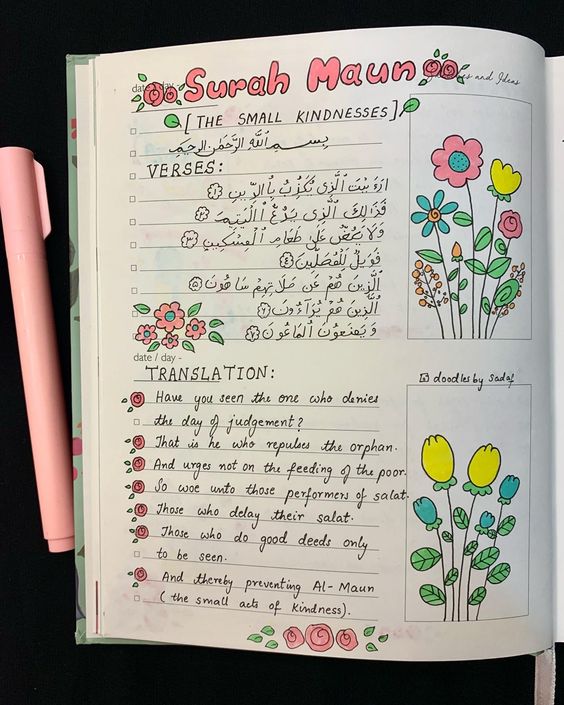 date / day
and Ideas
Surah Maun
[THE SMALL KINDNESSES]
بِسْمِ ٱللَّهِ الرَّحْمَٰنِ الرَّحِيمِ
VERSES:
اَرَءَيْتَ ٱلَّذِى يُكَذِّبُ بِٱلدِّينِ ١
فَذَٰلِكَ ٱلَّذِى يَدُعُّ ٱلْيَتِيمَ ٢
وَلَا يَحُضُّ عَلَىٰ طَعَامِ ٱلْمِسْكِينِ ٣
فَوَيْلٌ لِّلْمُصَلِّينَ ٤
ٱلَّذِينَ هُمْ عَن صَلَاتِهِمْ سَاهُونَ ٥
ٱلَّذِينَ هُمْ يُرَآءُونَ ٦
وَيَمْنَعُونَ ٱلْمَاعُونَ ٧
date / day -
TRANSLATION:
doodles by Sadaf
Have you seen the one who denies
the day of judgement?
That is he who repulses the orphan.
And urges not on the feeding of the poor.
So woe unto those performers of salat.
Those who delay their salat.
Those who do good deeds only
to be seen.
And thereby preventing Al-Maun
(the small acts of kindness).